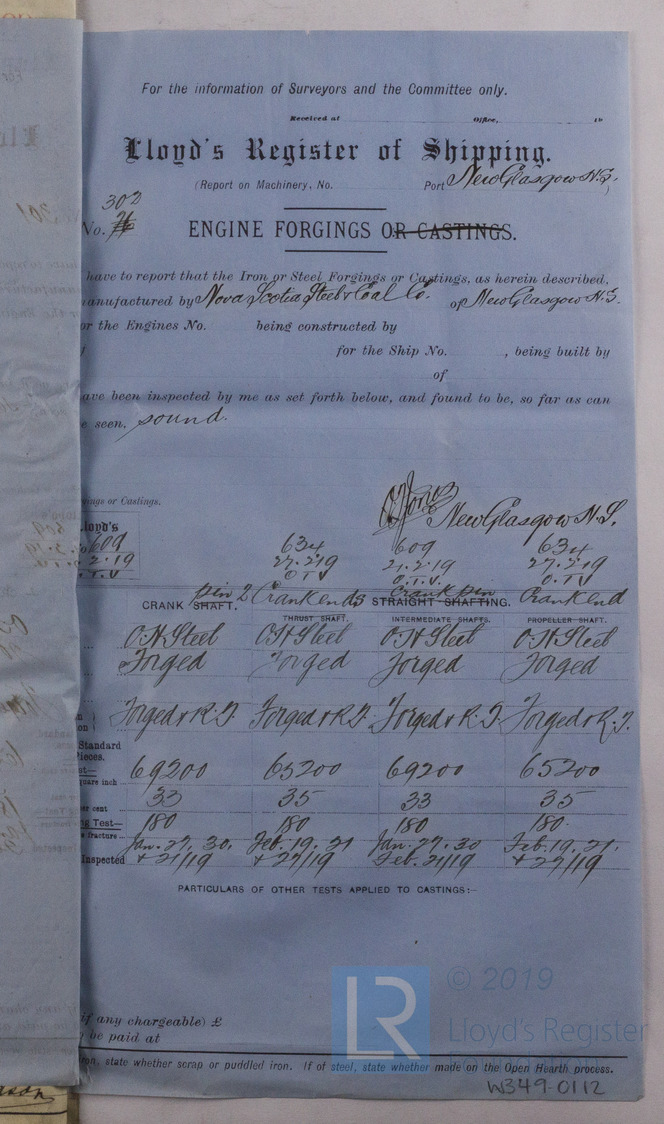 For the information of Surveyors and the Committee only.
Received at Office, 19
Lloyd's Register of Shipping.
(Report on Machinery, No. Port New Glasgow N.S.)
302
No.
ENGINE FORGINGS OR CASTINGS.
have to report that the Iron or Steel Forgings or Castings, as herein described,
manufactured by Nova Scotia Steel & Coal Co. of New Glasgow N.S.
or the Engines No. being constructed by
for the Ship No. , being built by
of
ave been inspected by me as set forth below, and found to be, so far as can
e seen, sound.
ings or Castings.
New Glasgow N.S.
loyd's
609 634 609 634
2.19 27.2.19 21.2.19 27.2.19
O.T.V. O.T.V. O.T.V. O.T.V.
pin 2 Crank ends Crank pin Crank end
CRANK SHAFT. STRAIGHT SHAFTING.
THRUST SHAFT. INTERMEDIATE SHAFTS. PROPELLER SHAFT.
O.H Steel O.H Steel O.H Steel O.H Steel
Forged Forged Forged Forged
Forged & R.T. Forged & R.T. Forged & R.T. Forged & R.T.
Standard
Pieces.
69200 65200 69200 65200
quare inch
33 35 33 35
per cent
g Test—
180 180 180 180
fracture
Jan. 27. 30. Feb. 19. 21 Jan. 27. 30 Feb. 19. 21.
Inspected + 21/19 + 27/19 Feb. 21/19 + 27/19
PARTICULARS OF OTHER TESTS APPLIED TO CASTINGS:—
if any chargeable) £
be paid at
iron, state whether scrap or puddled iron. If of steel, state whether made on the Open Hearth process.
W349-0112
LR
© 2019
Lloyd's Register